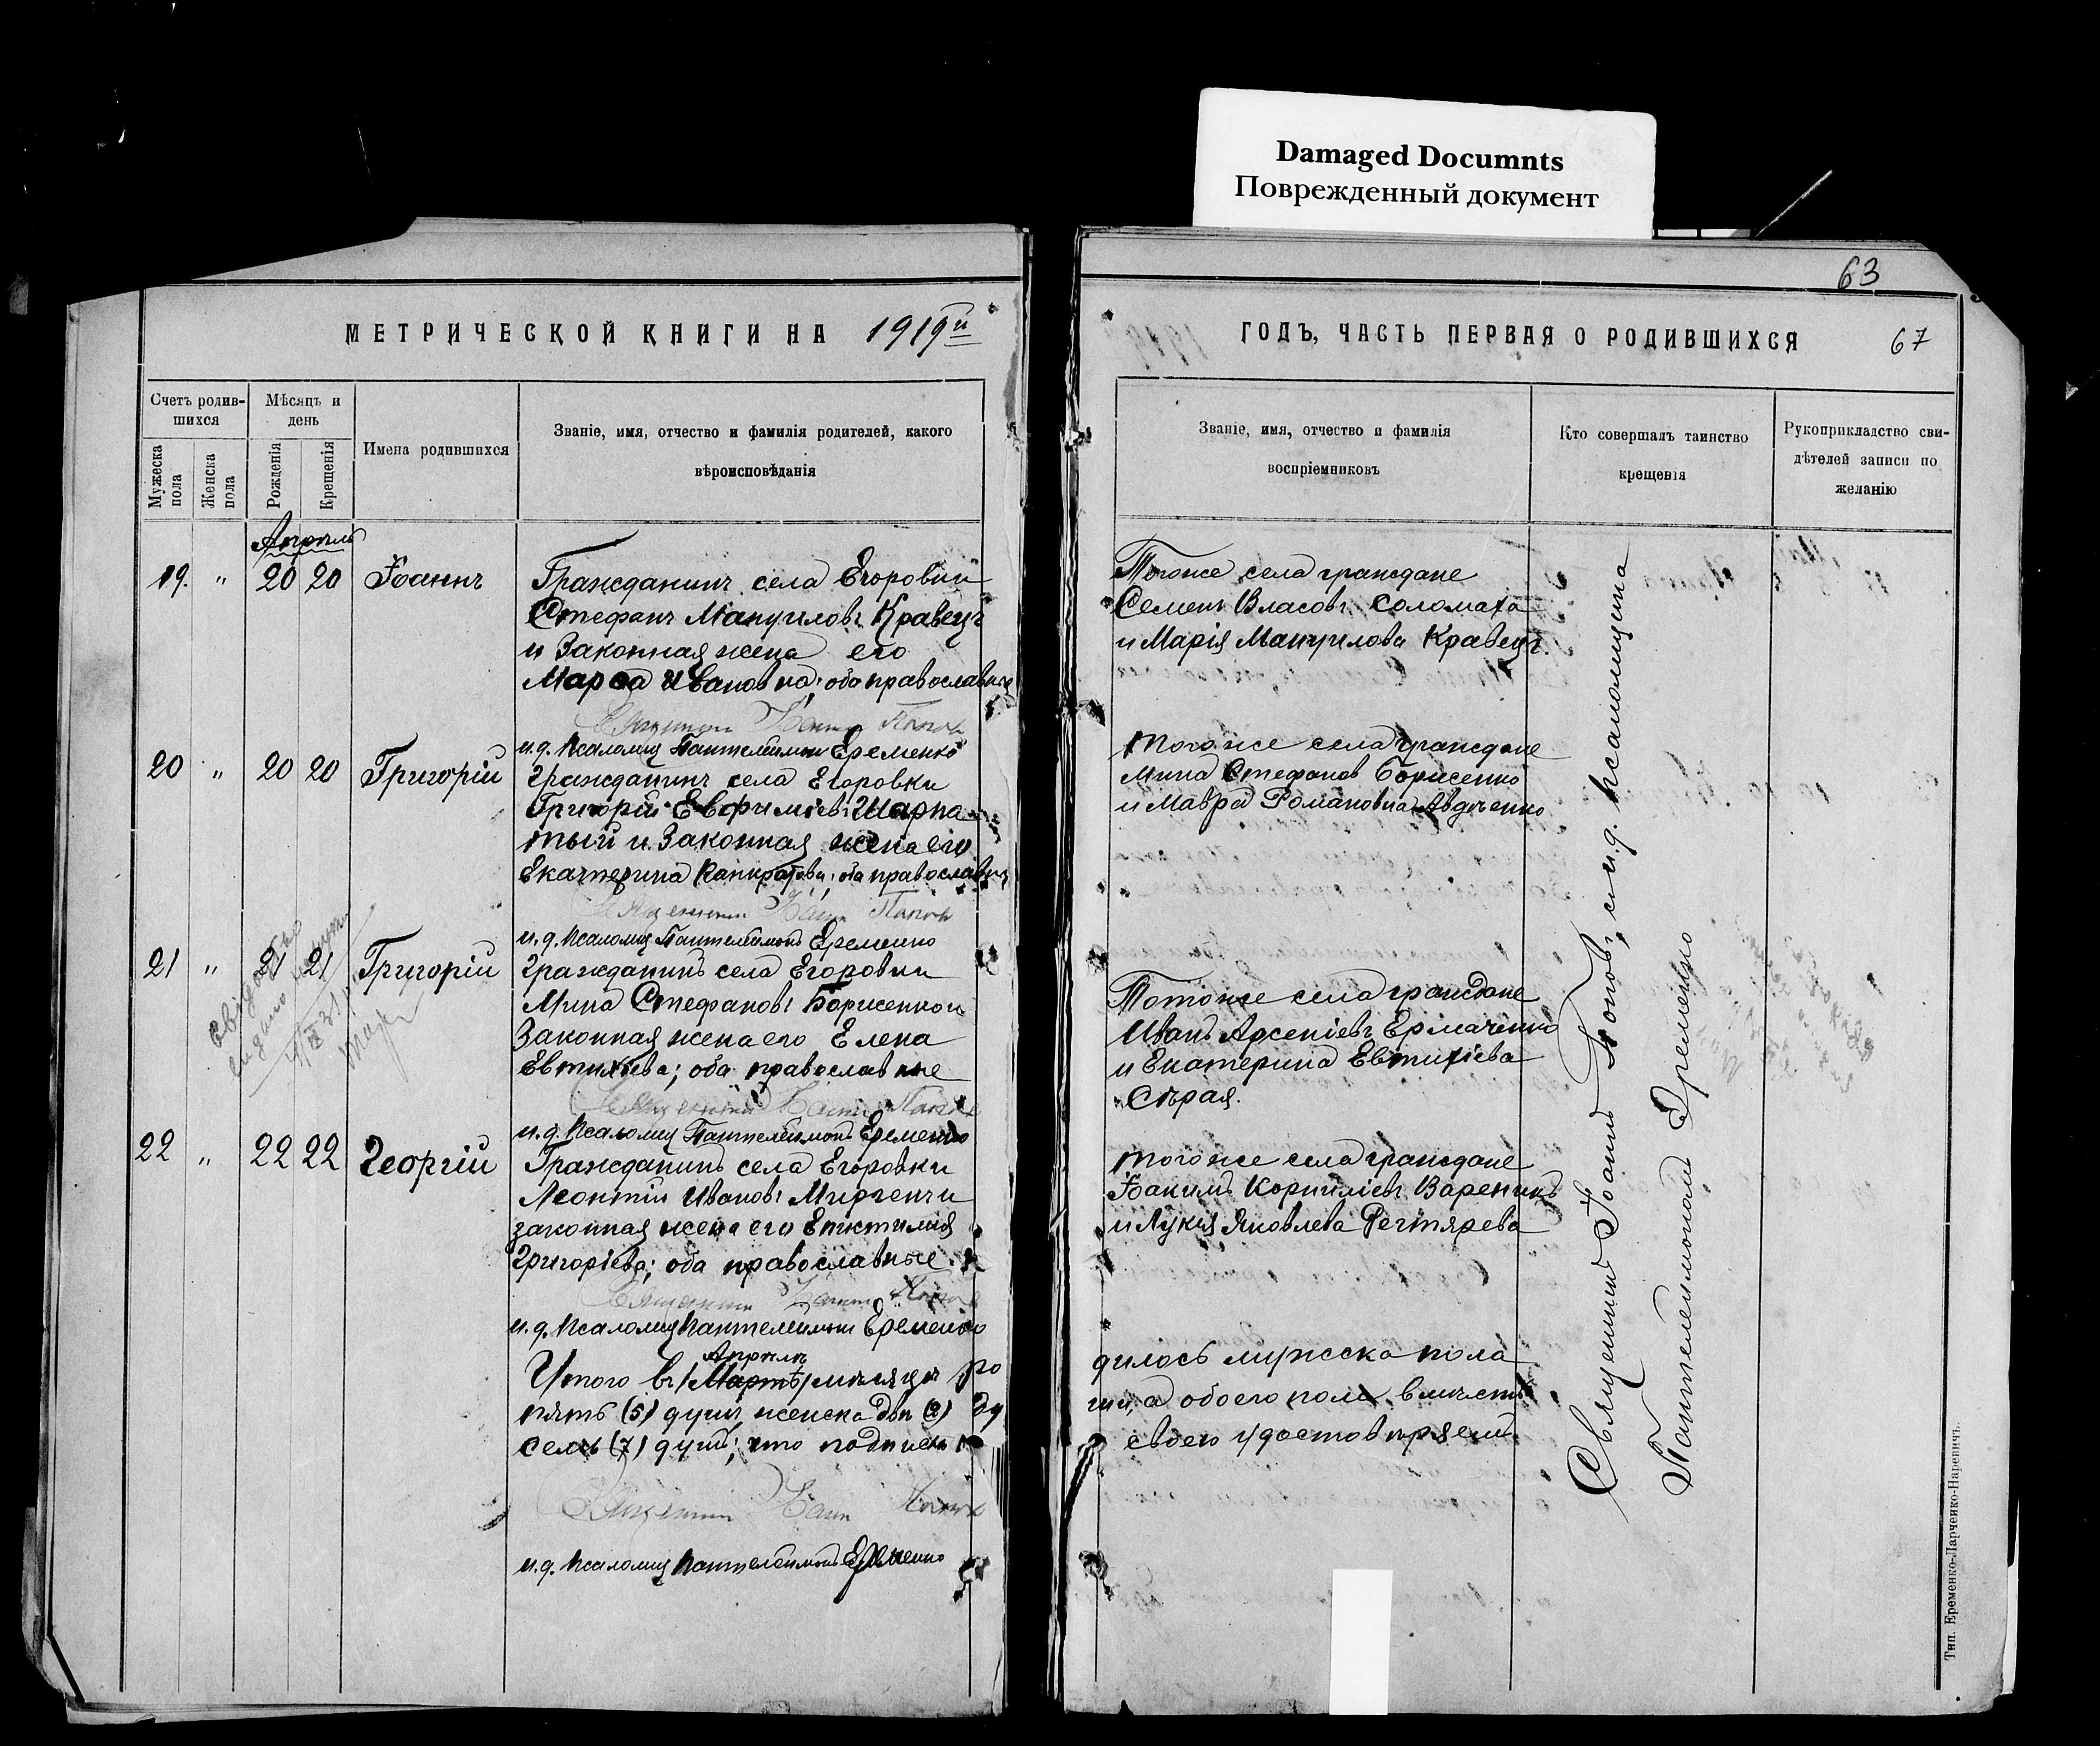 Damaged Documnts
Поврежденный документ
63
МЕТРИЧЕСКОЙ КНИГИ НА 1919й
ГОДЪ, ЧАСТЬ ПЕРВАЯ О РОДИВШИХСЯ
67
Счетъ родив-
шихся
Мужеска
пола
Женска
пола
Мѣсяцъ и
день
Рожденія
Крещенія
Имена родившихся
Званіе, имя, отчество и фамилія родителей, какого
вѣроисповѣданія
Званіе, имя, отчество и фамилія
воспріемниковъ
Кто совершалъ таинство
крещенія
Рукоприкладство сви-
дѣтелей записи по
желанію
Апрѣль
19. " 20 20 Іоаннъ
Гражданинъ села Егоровки
Стефанъ Мануиловъ Кравецъ
и Законная жена его
Марфа Ивановна; оба православные
Священникъ Іоаннъ Поповъ
и.д. Псаломщ Пантелеимонъ Еременко
Тогоже села граждане
Семенъ Власовъ Соломаха
и Марія Мануилова Кравецъ.
20 " 20 20 Григорій
Гражданинъ села Егоровки
Григорій Евфиміевъ Шарпа
тый и Законная жена его
Екатерина Панкратова; оба православны
Священникъ Іоаннъ Поповъ
и.д. Псаломщ Пантелеимонъ Еременко
тогоже села граждане
Мина Стефановъ Борисенко
и Мавра Романовна Авдѣенко
21 " 21 21 Григорій
Гражданинъ села Егоровки
Мина Стефановъ Борисенко и
Законная жена его Елена
Евтихіева; оба православные
Священникъ Іоаннъ Поповъ
и.д. Псаломщ Пантелеимонъ Еременко
Тогоже села граждане
Иванъ Арсеніевъ Ермаченко
и Екатерина Евтихіева
Сѣрая.
22 " 22 22 Георгій
Гражданинъ села Егоровки
Леонтій Ивановъ
законная жена его Епистимія
Григоріева; оба православные
Священникъ Іоаннъ Поповъ
и.д. Псаломщ Пантелеимонъ Еременко
тогоже села граждане
Іоакимъ Корниліевъ Вареникъ
и Лукія Яковлева Дегтярева
Апрѣлѣ
Итого въ /Мартѣ/ мѣсяцѣ ро
дилось мужеска пола
пять (5) душъ, женска двѣ (2) ду
ши, а обоего пола вмѣстѣ
семь (7) душъ; что подписью
своею удостовѣряемъ.
Священникъ Іоаннъ Поповъ
и.д. Псаломщ Пантелеимонъ Еременко
Священникъ Іоаннъ Поповъ, съ и.д. псаломщика
Пантелеимономъ Еременко
Тип. Еременко-Ларченко-Наревичъ.